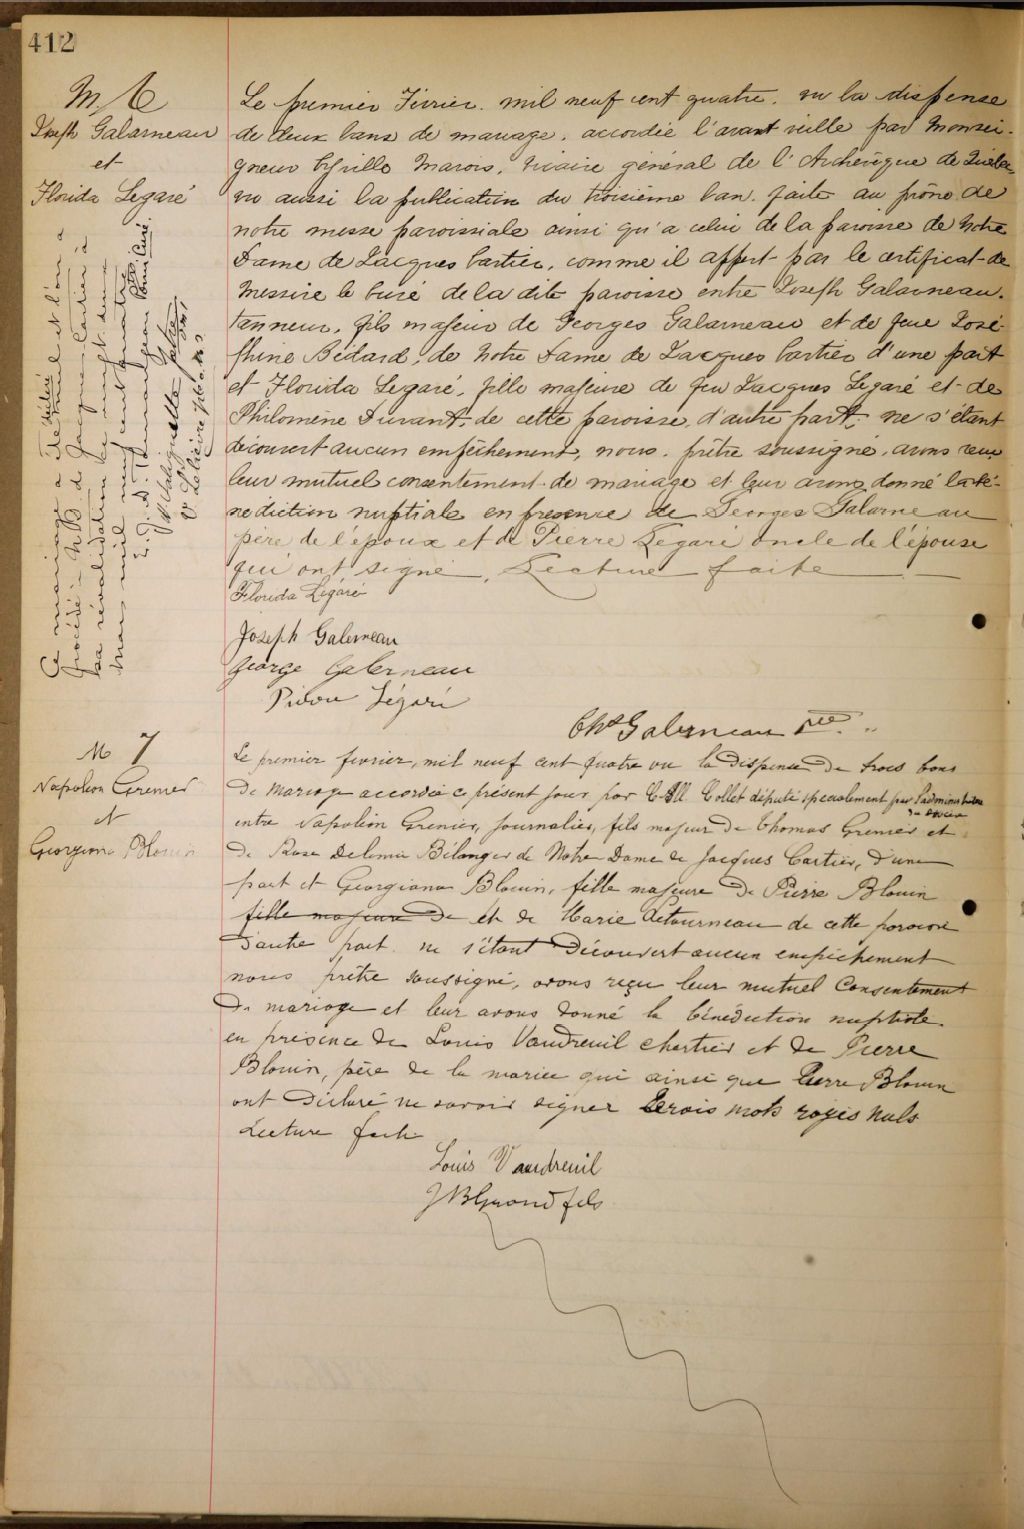 412
M. 6
Joseph Galarneau
et
Florida Legaré
Le premier Février. mil neuf cent quatre. vu la dispense
de deux bans de mariage. accordée l'avant veille par Monsei-
gneur Cyrille Marois, Vicaire général de l'Archevêque de Québec,
vu aussi la publication du troisième ban. faite au prône de
notre messe paroissiale ainsi qu'a celui de la paroisse de Notre
Dame de Jacques Cartier, comme il appert par le certificat de
Messire le Curé de la dite paroisse entre Joseph Galarneau.
tanneur, fils majeur de Georges Galarneau et de feue José-
phine Bédard, de Notre Dame de Jacques Cartier d'une part
et Florida Legaré, fille majeure de feu Jacques Legaré et de
Philomène Durant, de cette paroisse, d'autre part; ne s'étant
découvert aucun empêchement, nous. prêtre soussigné, avons reçu
leur mutuel consentement de mariage et leur avons donné la bé-
nédiction nuptiale en presence de Georges Galarneau
père de l'époux et de Pierre Legaré oncle de l'épouse
qui ont signé. Lecture faite
Florida Légaré
Joseph Galerneau
George Galerneau
Pierre Légaré
Chs Galerneau Ptre.
Ce mariage a été déclaré nul et l'on a
procédé à N.D. de Jacques Cartier à
sa révalidation le vingt-deux
mars mil neuf cent quatre
M 7
Napoléon Grenier
et
Georgiana Blouin
Le premier fevrier, mil neuf cent quatre vu la dispense de trois bans
de mariage accordée ce présent jour par C. A. Collet député specialement par l'administrateur
du diocèse
entre Napoléon Grenier, journalier, fils majeur de Thomas Grenier et
de Rose Delima Bélanger de Notre Dame de Jacques Cartier, d'une
part et Georgiana Blouin, fille majeure de Pierre Blouin
fille majeure de et de Marie Letourneau de cette paroisse
d'autre part. ne s'étant découvert aucun empêchement
nous prêtre soussigné, avons reçu leur mutuel consentement
de mariage et leur avons donné la bénédiction nuptiale
en présence de Louis Vaudreuil charretier et de Pierre
Blouin, père de la mariée qui ainsi que Pierre Blouin
ont déclaré ne savoir signer trois mots rayés nuls
Lecture faite
Louis Vaudreuil